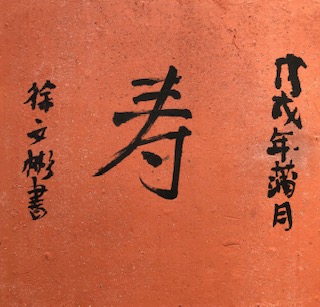 戊戌年蒲月
寿
徐文彬書